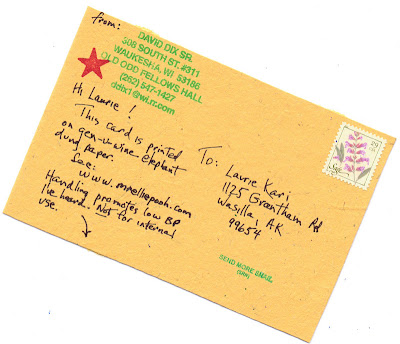 from:
DAVID DIX SR.
308 SOUTH ST. #311
WAUKESHA, WI 53186
OLD ODD FELLOWS HALL
(262) 547-1427
ddix1@wi.rr.com
Hi Laurie!
This card is printed
on gen-u-wine elephant
dung paper.
See:
www.mrelliepooh.com
Handling promotes low BP
I've heard. Not for internal
use.
To: Laurie Kari
1125 Greentham Rd
Wasilla, AK
99654
29
USA
SEND MORE EMAIL